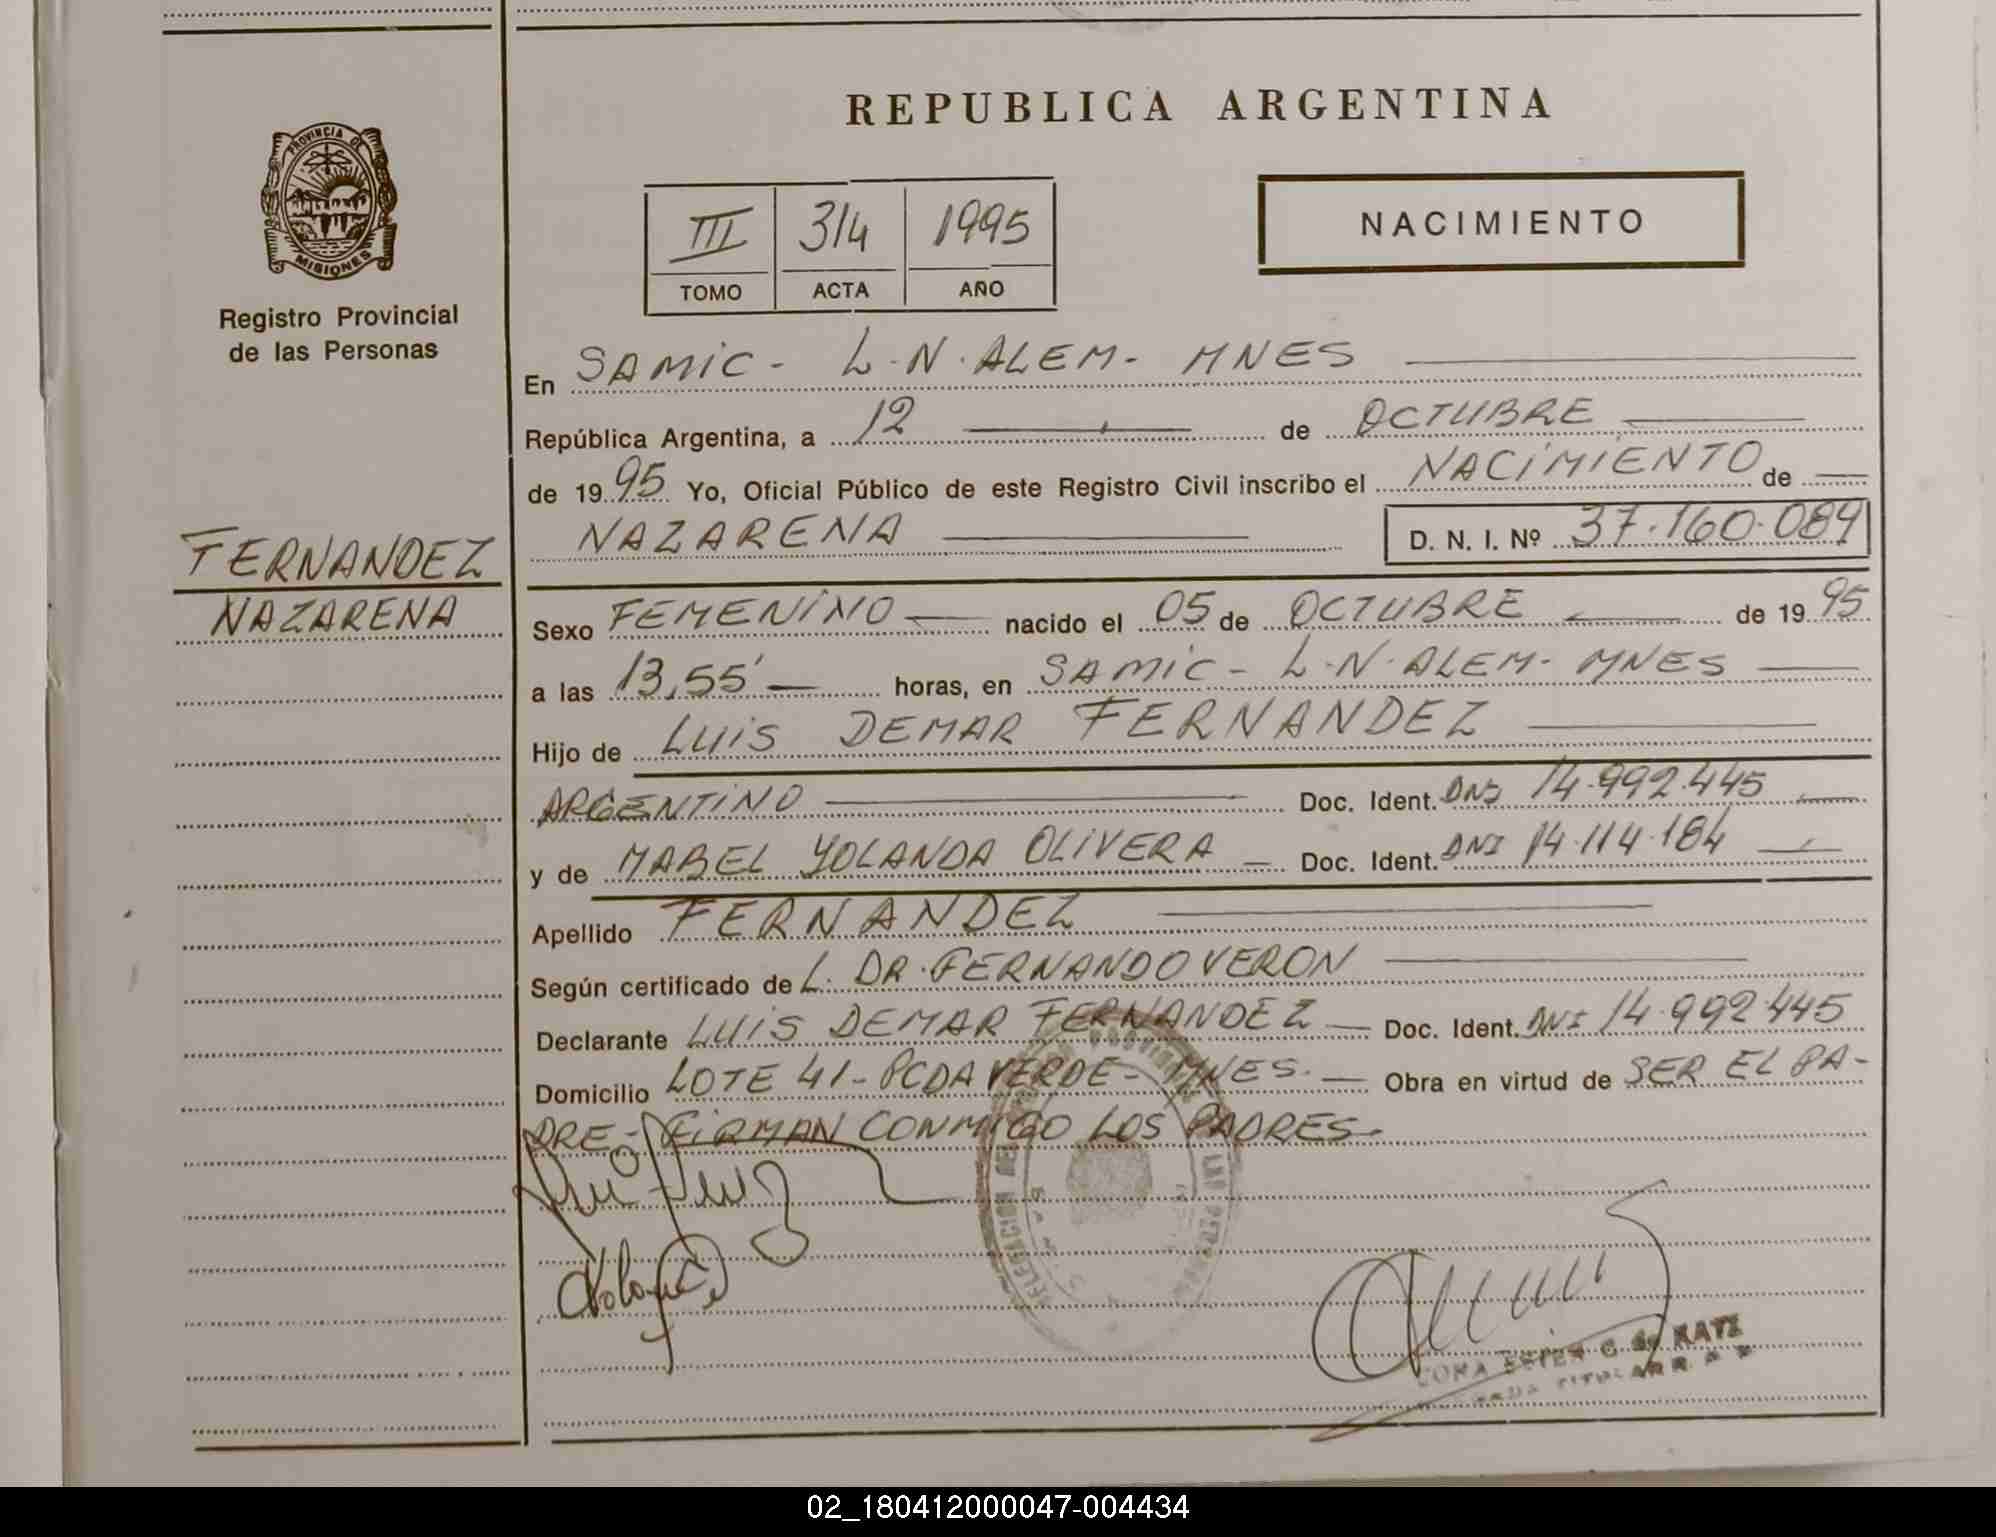 REPUBLICA ARGENTINA
PROVINCIA DE MISIONES
Registro Provincial
de las Personas
III 314 1995
TOMO ACTA AÑO
NACIMIENTO
En SAMIC - L.N. ALEM - MNES
República Argentina, a 12 de OCTUBRE
de 1995 Yo, Oficial Público de este Registro Civil inscribo el NACIMIENTO de
NAZARENA D. N. I. Nº 37.160.089
FERNANDEZ
NAZARENA
Sexo FEMENINO nacido el 05 de OCTUBRE de 1995
a las 13,55' horas, en SAMIC - L.N. ALEM - MNES
Hijo de LUIS DEMAR FERNANDEZ
ARGENTINO Doc. Ident. DNI 14.992.445
y de MABEL YOLANDA OLIVERA Doc. Ident. DNI 14.114.184
Apellido FERNANDEZ
Según certificado de L. DR. FERNANDO VERON
Declarante LUIS DEMAR FERNANDEZ Doc. Ident. DNI 14.992.445
Domicilio LOTE 41 - PCDA VERDE - MNES. Obra en virtud de SER EL PA-
DRE - FIRMAN CONMIGO LOS PADRES.
ESTER C de KATZ
02_180412000047-004434